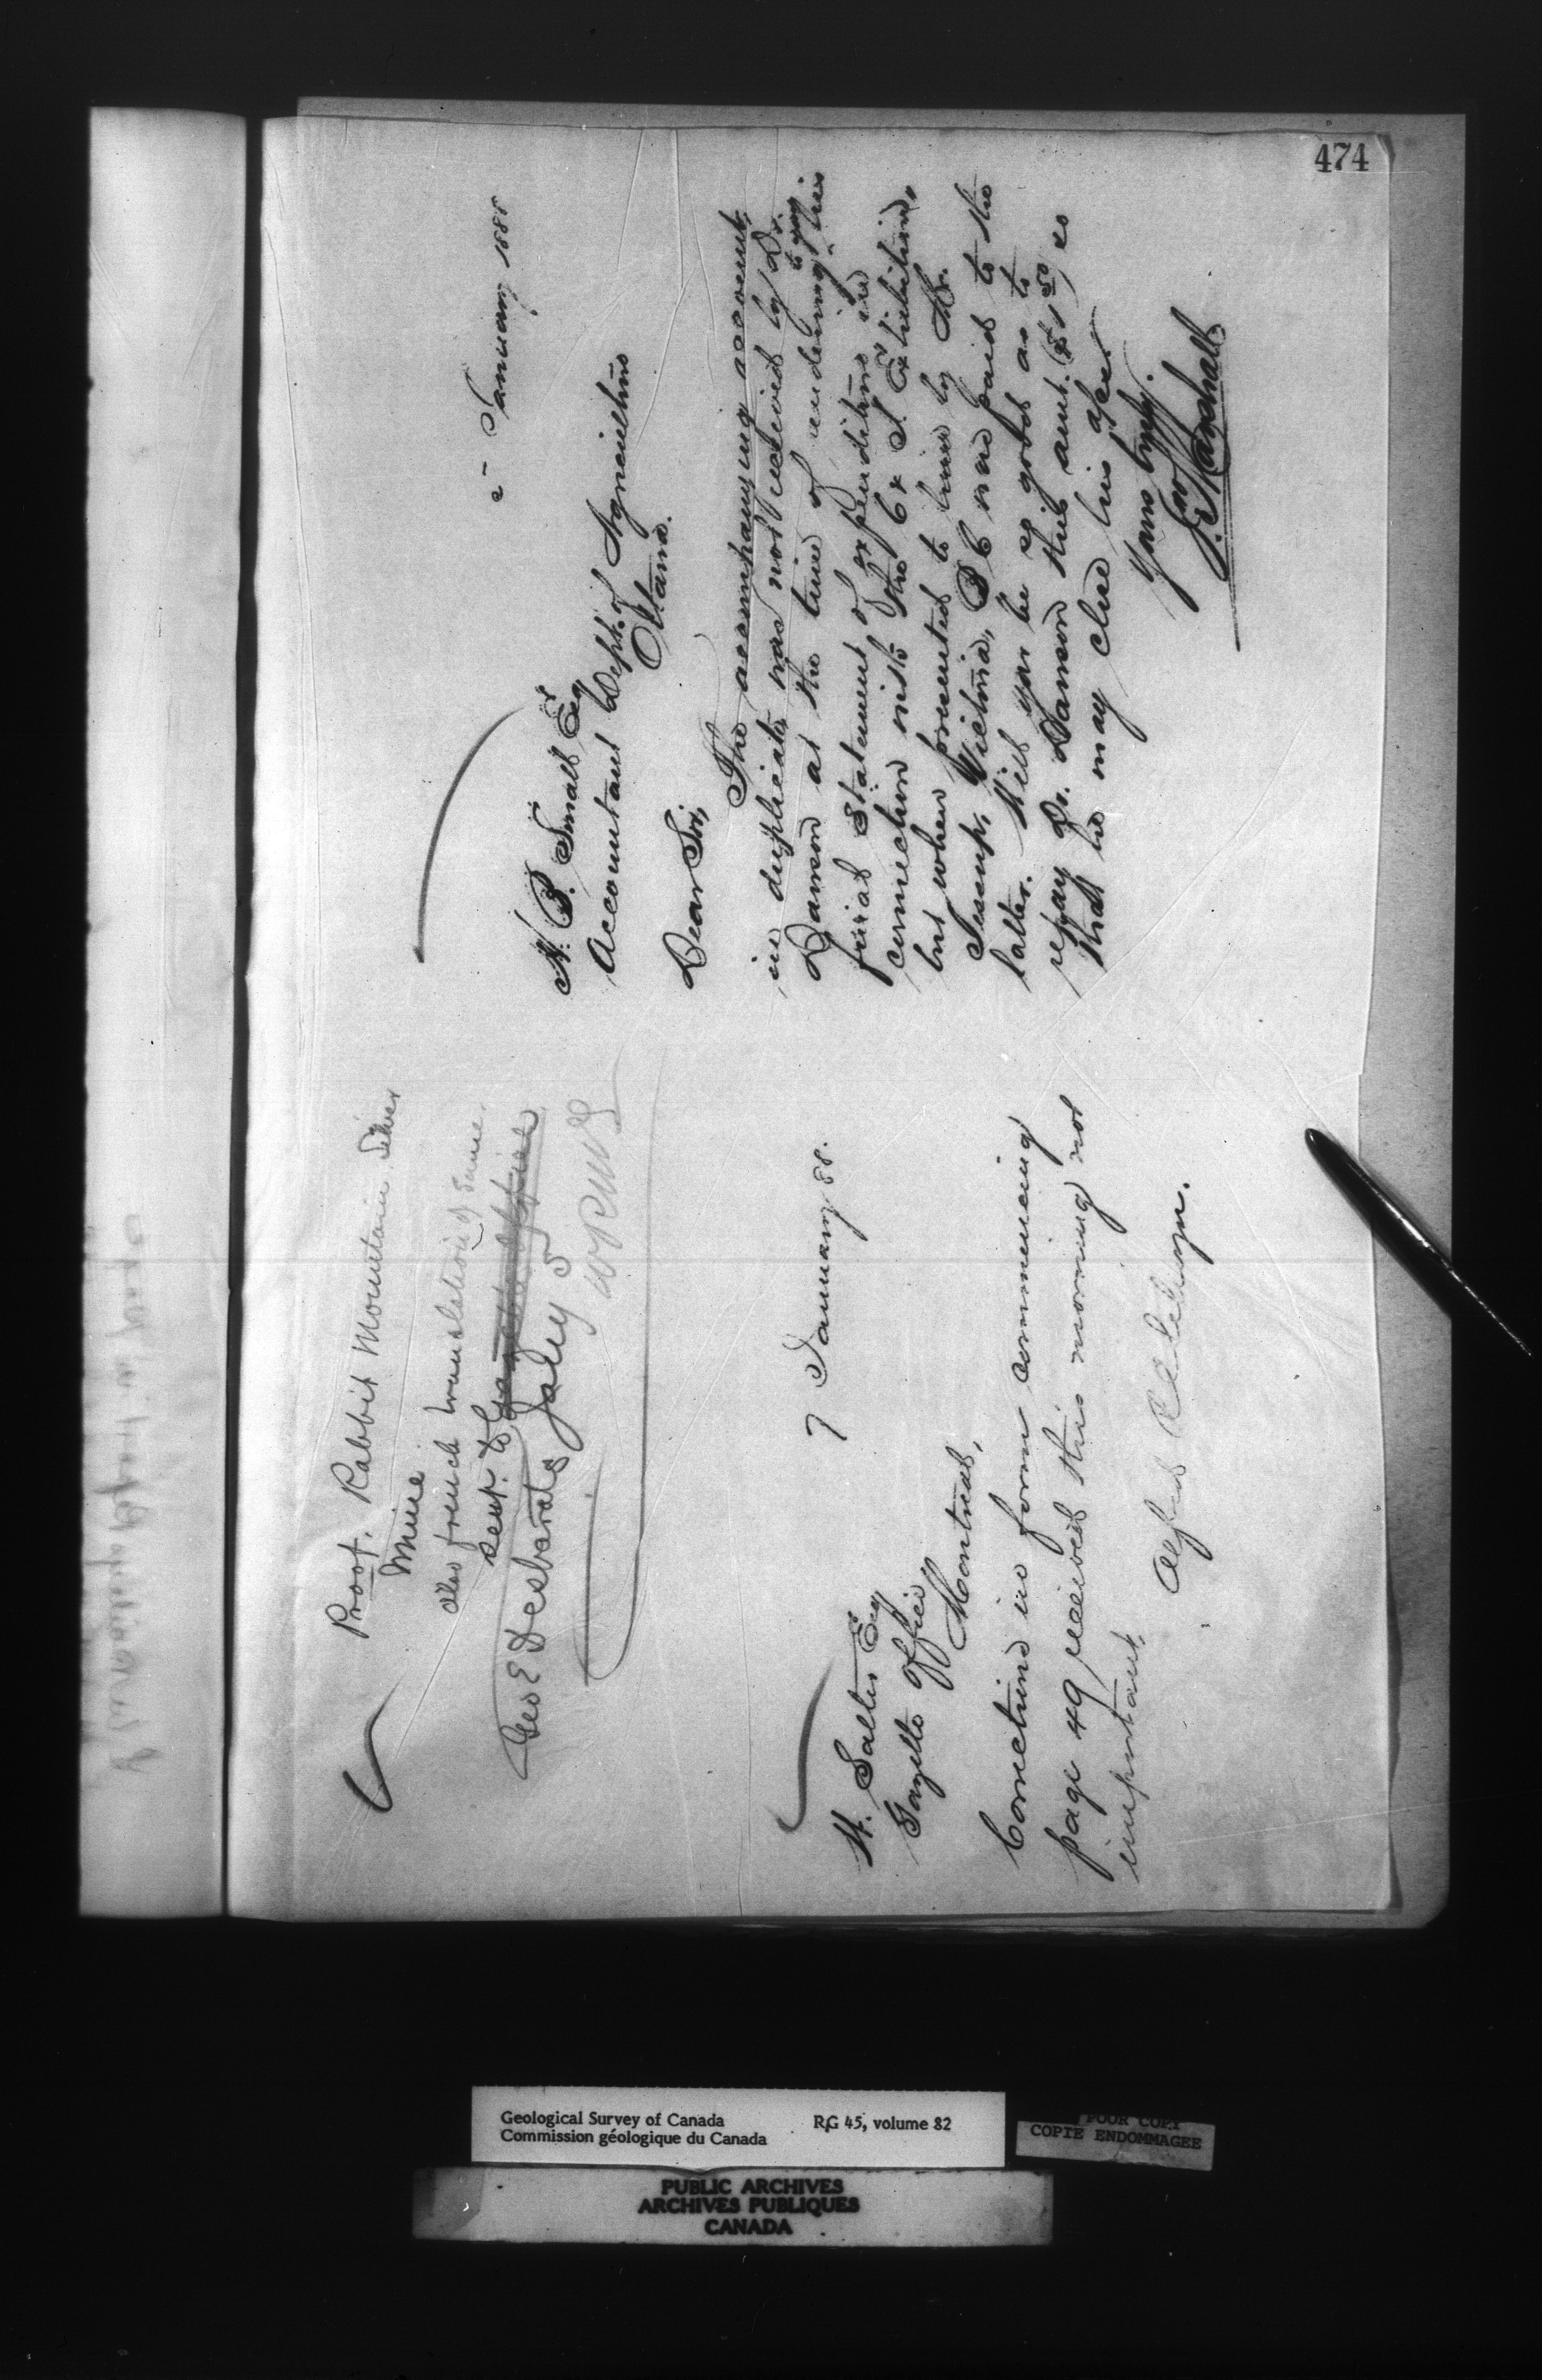 474
Proof. Rabbit Mountain Silver
Mine
also french translation of same.
sent to Gazette Office
Geo E Desbarats Jaly 5
H. Salter Esq
Gazette Office
Montreal,
7 January 88.
Corrections in form commencing
page 49 received this morning not
important.
January 1888
H. B. Small Esqr
Accountant Dept. of Agriculture
Ottawa.
Dear Sir,
The accompanying account,
in duplicate, was not received by Dr.
Dawson at the time of rendering to you his
final statement of expenditure in
connection with the C & I. Exhibition,
but when presented to him by Mr.
Jessup, Victoria, B C was paid to the
latter. Will you be so good as to
repay Dr. Dawson this amt. ($1 50) so
that he may close his
Yours truly.
Jno Marshall
Geological Survey of Canada
Commission géologique du Canada
RG 45, volume 82
POOR COPY
COPIE ENDOMMAGEE
PUBLIC ARCHIVES
ARCHIVES PUBLIQUES
CANADA